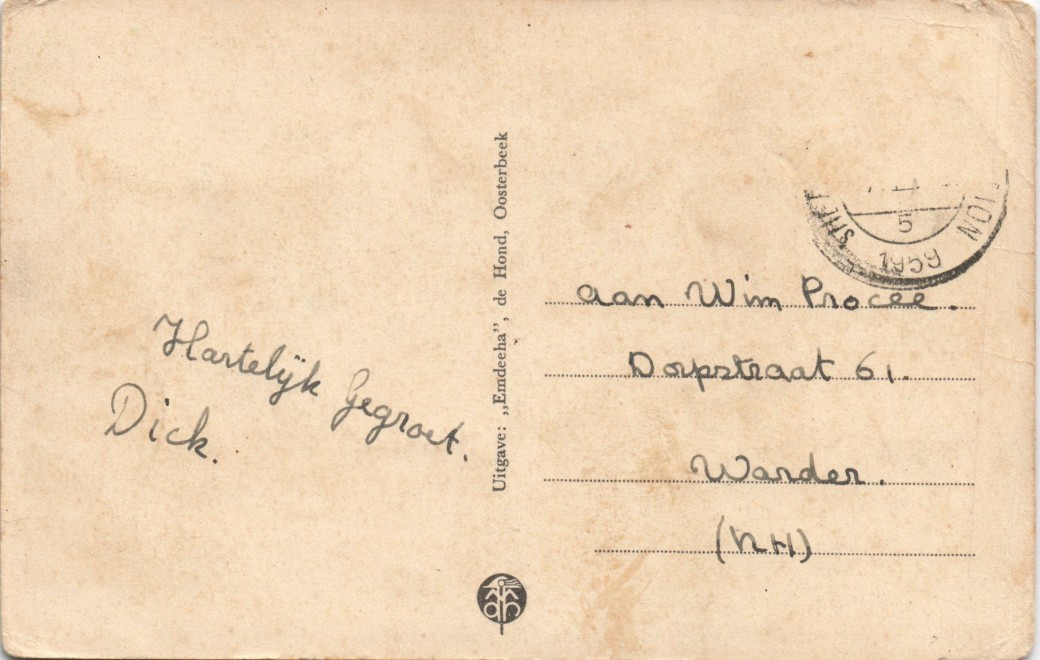 Hartelijk Gegroet.
Dick.
Uitgave: „Emdeeha”, de Hond, Oosterbeek
5
1959
aan Wim Procee.
Dorpstraat 61.
Warder.
(NH)